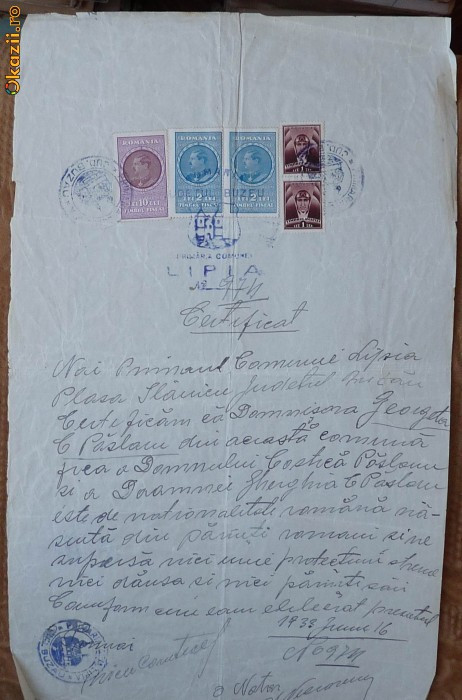 Okazii.ro
ROMANIA ROMANIA ROMANIA
LEI 10 LEI
TIMBRU FISCAL
2 LEI
TIMBRU FISCAL
2 LEI
TIMBRU FISCAL
JUDEȚUL BUZEU
PRIMĂRIA COMUNEI
LIPIA
No 974
Certificat
Noi Primarul Comunei Lipia
Plasa Slănicu Județul Buzău
Certificăm că Domnisora Georgeta
C Pâslaru din această comună
fica a Domnului Costică Pâslaru
si a Doamnei Gherghina C Pâslaru
este de nationalitate română năs
cută din părinți romani si ne
supusă nici unei protectiuni streine
nici dânsa si nici părinții săi
Conform căruia s'am eliberat prezentul
1933 Junie 16
No 974
Primar
Notar